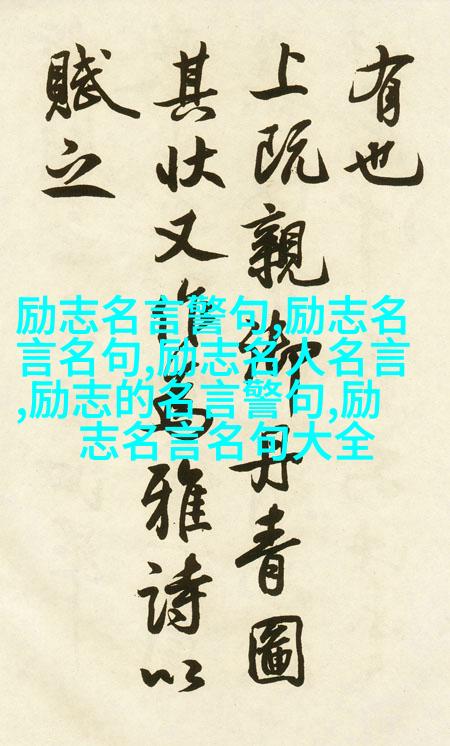 有也
上既親御丹青圖
其状又作為雅詩以
賦之
励志名言警句,励志名
言名句,励志名人名言
,励志的名言警句,励
志名言名句大全